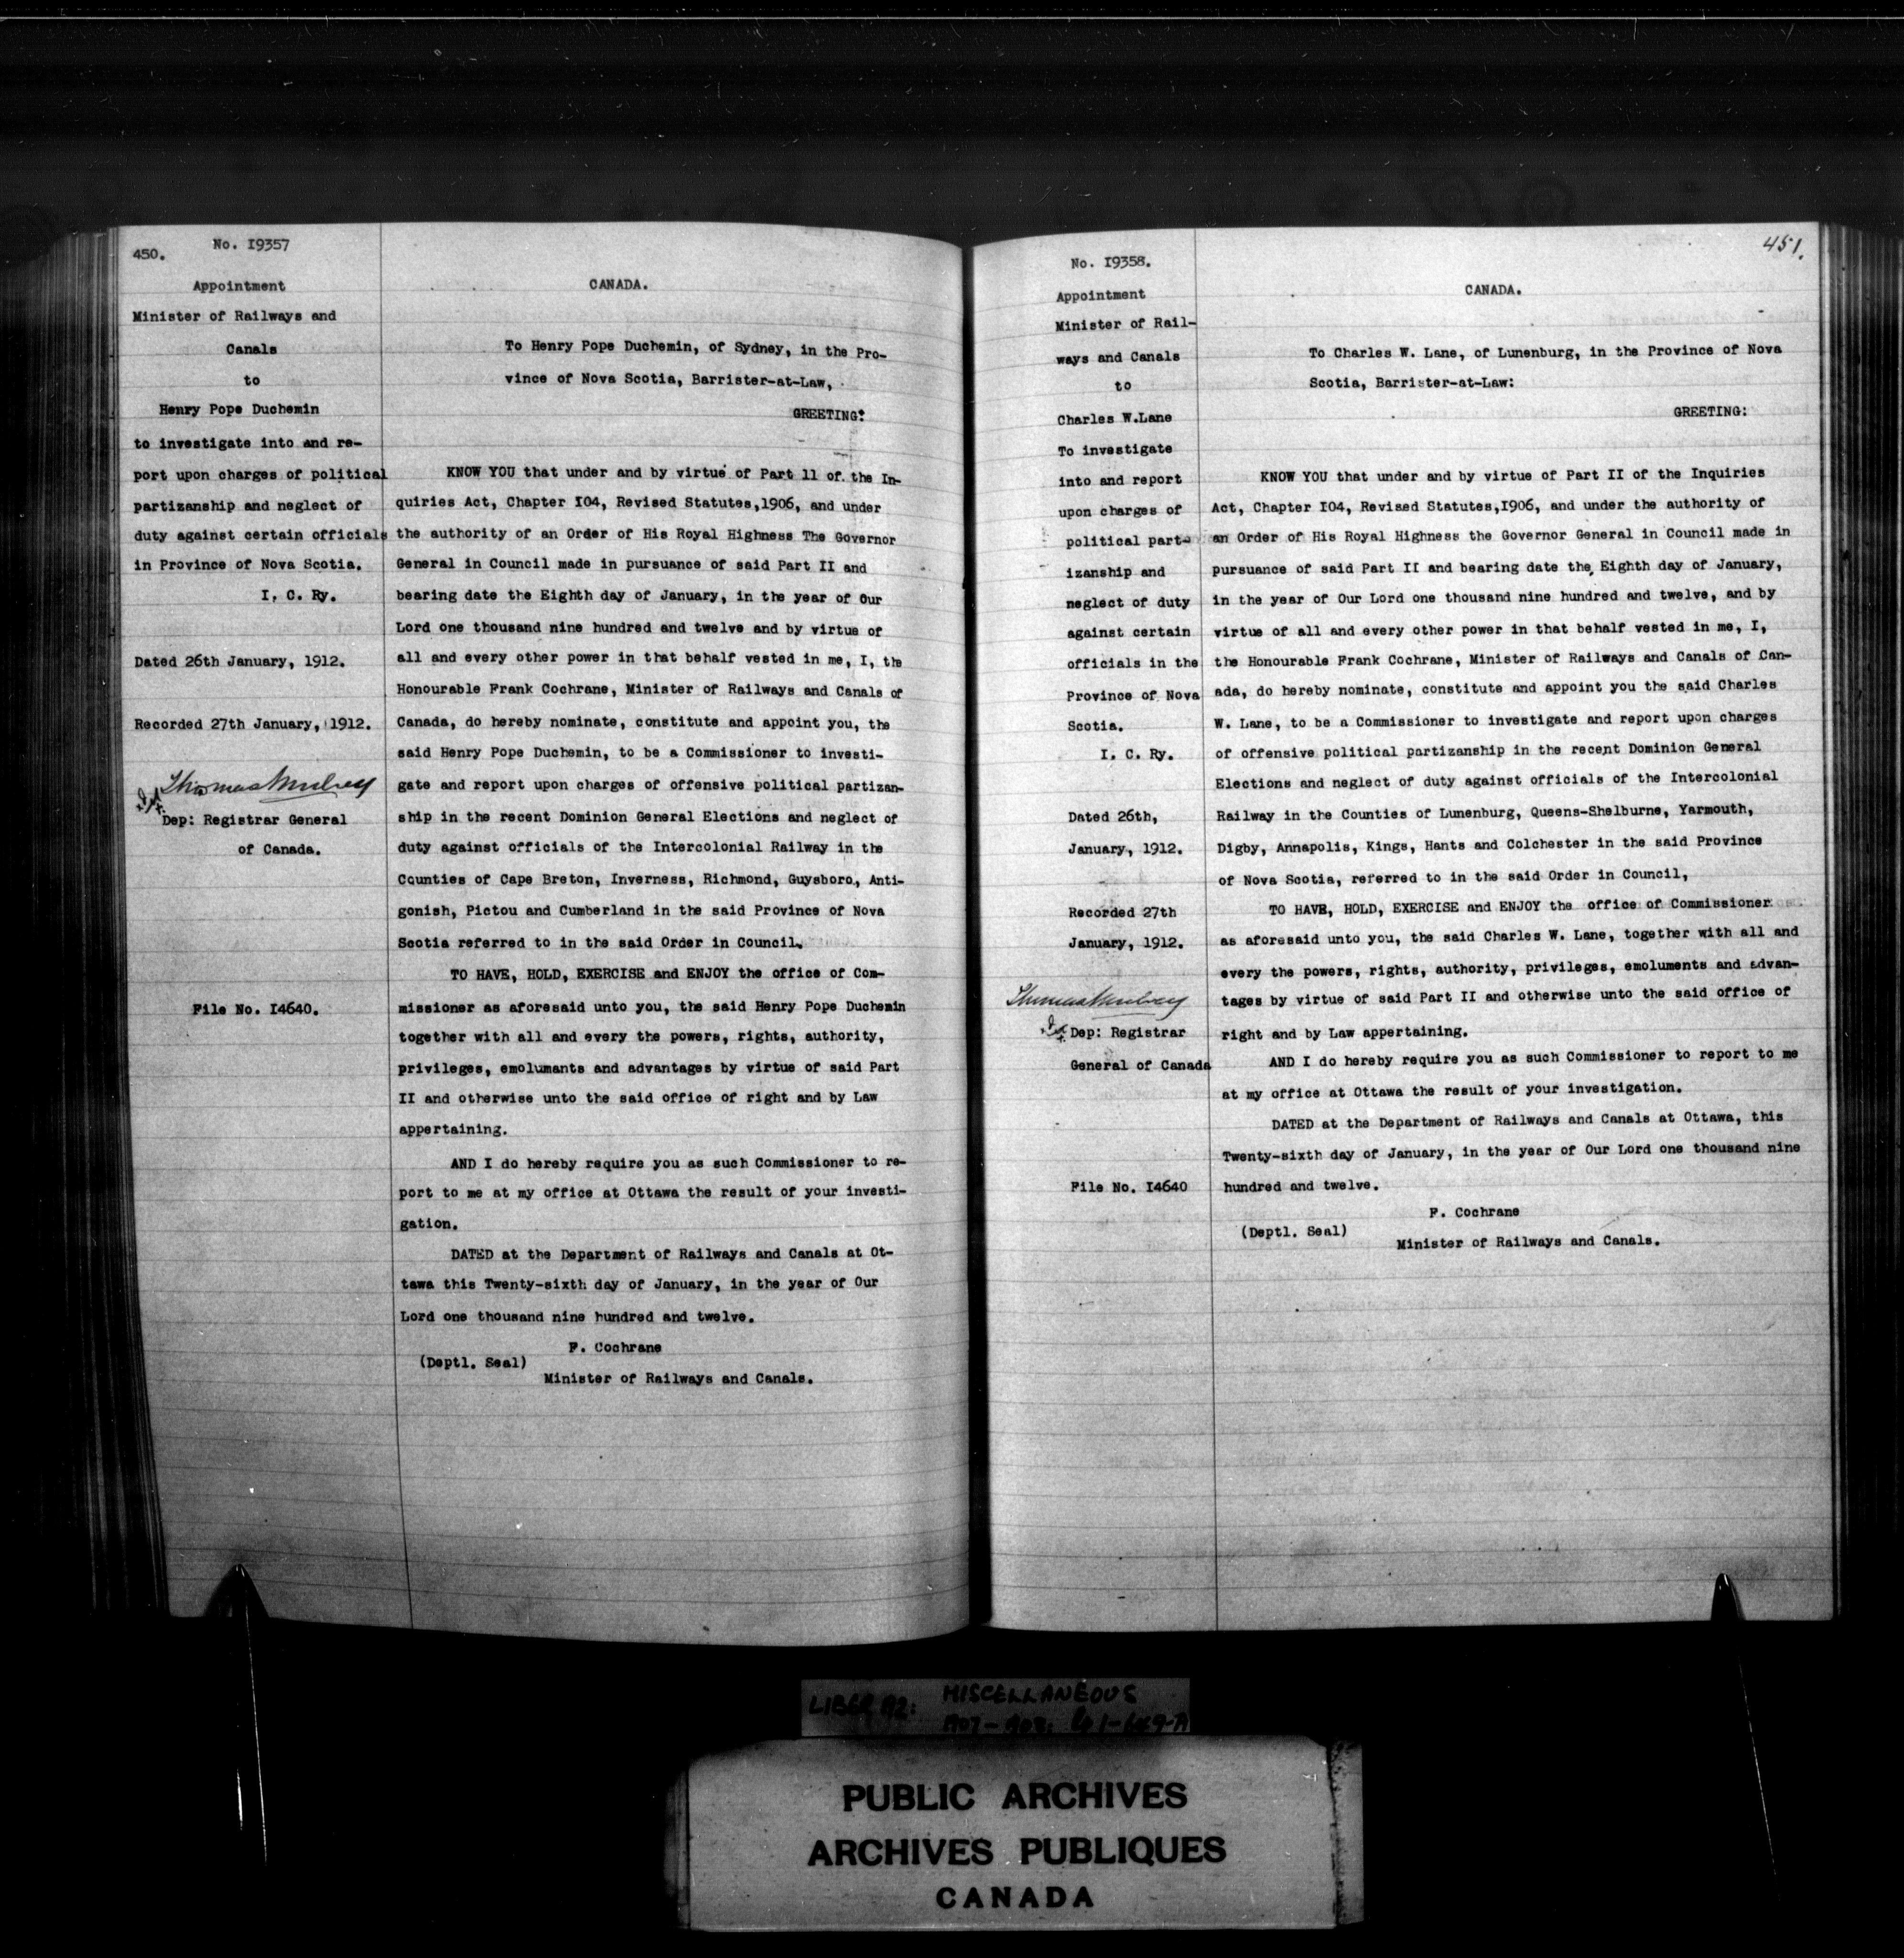 450.
No. I9357
Appointment
Minister of Railways and
Canals
to
Henry Pope Duchemin
to investigate into and re-
port upon charges of political
partizanship and neglect of
duty against certain officials
in Province of Nova Scotia.
I. C. Ry.
Dated 26th January, 1912.
Recorded 27th January, 1912.
Thomas Mulvey
Dep: Registrar General
of Canada.
File No. I4640.
CANADA.
To Henry Pope Duchemin, of Sydney, in the Pro-
vince of Nova Scotia, Barrister-at-Law,
GREETING:
KNOW YOU that under and by virtue of Part 11 of the In-
quiries Act, Chapter I04, Revised Statutes,1906, and under
the authority of an Order of His Royal Highness The Governor
General in Council made in pursuance of said Part II and
bearing date the Eighth day of January, in the year of Our
Lord one thousand nine hundred and twelve and by virtue of
all and every other power in that behalf vested in me, I, the
Honourable Frank Cochrane, Minister of Railways and Canals of
Canada, do hereby nominate, constitute and appoint you, the
said Henry Pope Duchemin, to be a Commissioner to investi-
gate and report upon charges of offensive political partizan-
ship in the recent Dominion General Elections and neglect of
duty against officials of the Intercolonial Railway in the
Counties of Cape Breton, Inverness, Richmond, Guysboro, Anti-
gonish, Pictou and Cumberland in the said Province of Nova
Scotia referred to in the said Order in Council.
TO HAVE, HOLD, EXERCISE and ENJOY the office of Com-
missioner as aforesaid unto you, the said Henry Pope Duchemin
together with all and every the powers, rights, authority,
privileges, emolumants and advantages by virtue of said Part
II and otherwise unto the said office of right and by Law
appertaining.
AND I do hereby require you as such Commissioner to re-
port to me at my office at Ottawa the result of your investi-
gation.
DATED at the Department of Railways and Canals at Ot-
tawa this Twenty-sixth day of January, in the year of Our
Lord one thousand nine hundred and twelve.
F. Cochrane
(Deptl. Seal)
Minister of Railways and Canals.
451.
No. I9358.
Appointment
Minister of Rail-
ways and Canals
to
Charles W.Lane
To investigate
into and report
upon charges of
political part-
izanship and
neglect of duty
against certain
officials in the
Province of Nova
Scotia.
I. C. Ry.
Dated 26th,
January, 1912.
Recorded 27th
January, 1912.
Thomas Mulvey
Dep: Registrar
General of Canada
File No. I4640
CANADA.
To Charles W. Lane, of Lunenburg, in the Province of Nova
Scotia, Barrister-at-Law:
GREETING:
KNOW YOU that under and by virtue of Part II of the Inquiries
Act, Chapter I04, Revised Statutes,I906, and under the authority of
an Order of His Royal Highness the Governor General in Council made in
pursuance of said Part II and bearing date the Eighth day of January,
in the year of Our Lord one thousand nine hundred and twelve, and by
virtue of all and every other power in that behalf vested in me, I,
the Honourable Frank Cochrane, Minister of Railways and Canals of Can-
ada, do hereby nominate, constitute and appoint you the said Charles
W. Lane, to be a Commissioner to investigate and report upon charges
of offensive political partizanship in the recent Dominion General
Elections and neglect of duty against officials of the Intercolonial
Railway in the Counties of Lunenburg, Queens-Shelburne, Yarmouth,
Digby, Annapolis, Kings, Hants and Colchester in the said Province
of Nova Scotia, referred to in the said Order in Council,
TO HAVE, HOLD, EXERCISE and ENJOY the office of Commissioner
as aforesaid unto you, the said Charles W. Lane, together with all and
every the powers, rights, authority, privileges, emoluments and advan-
tages by virtue of said Part II and otherwise unto the said office of
right and by Law appertaining.
AND I do hereby require you as such Commissioner to report to me
at my office at Ottawa the result of your investigation.
DATED at the Department of Railways and Canals at Ottawa, this
Twenty-sixth day of January, in the year of Our Lord one thousand nine
hundred and twelve.
F. Cochrane
(Deptl. Seal)
Minister of Railways and Canals.
LIBER
MISCELLANEOUS
PUBLIC ARCHIVES
ARCHIVES PUBLIQUES
CANADA